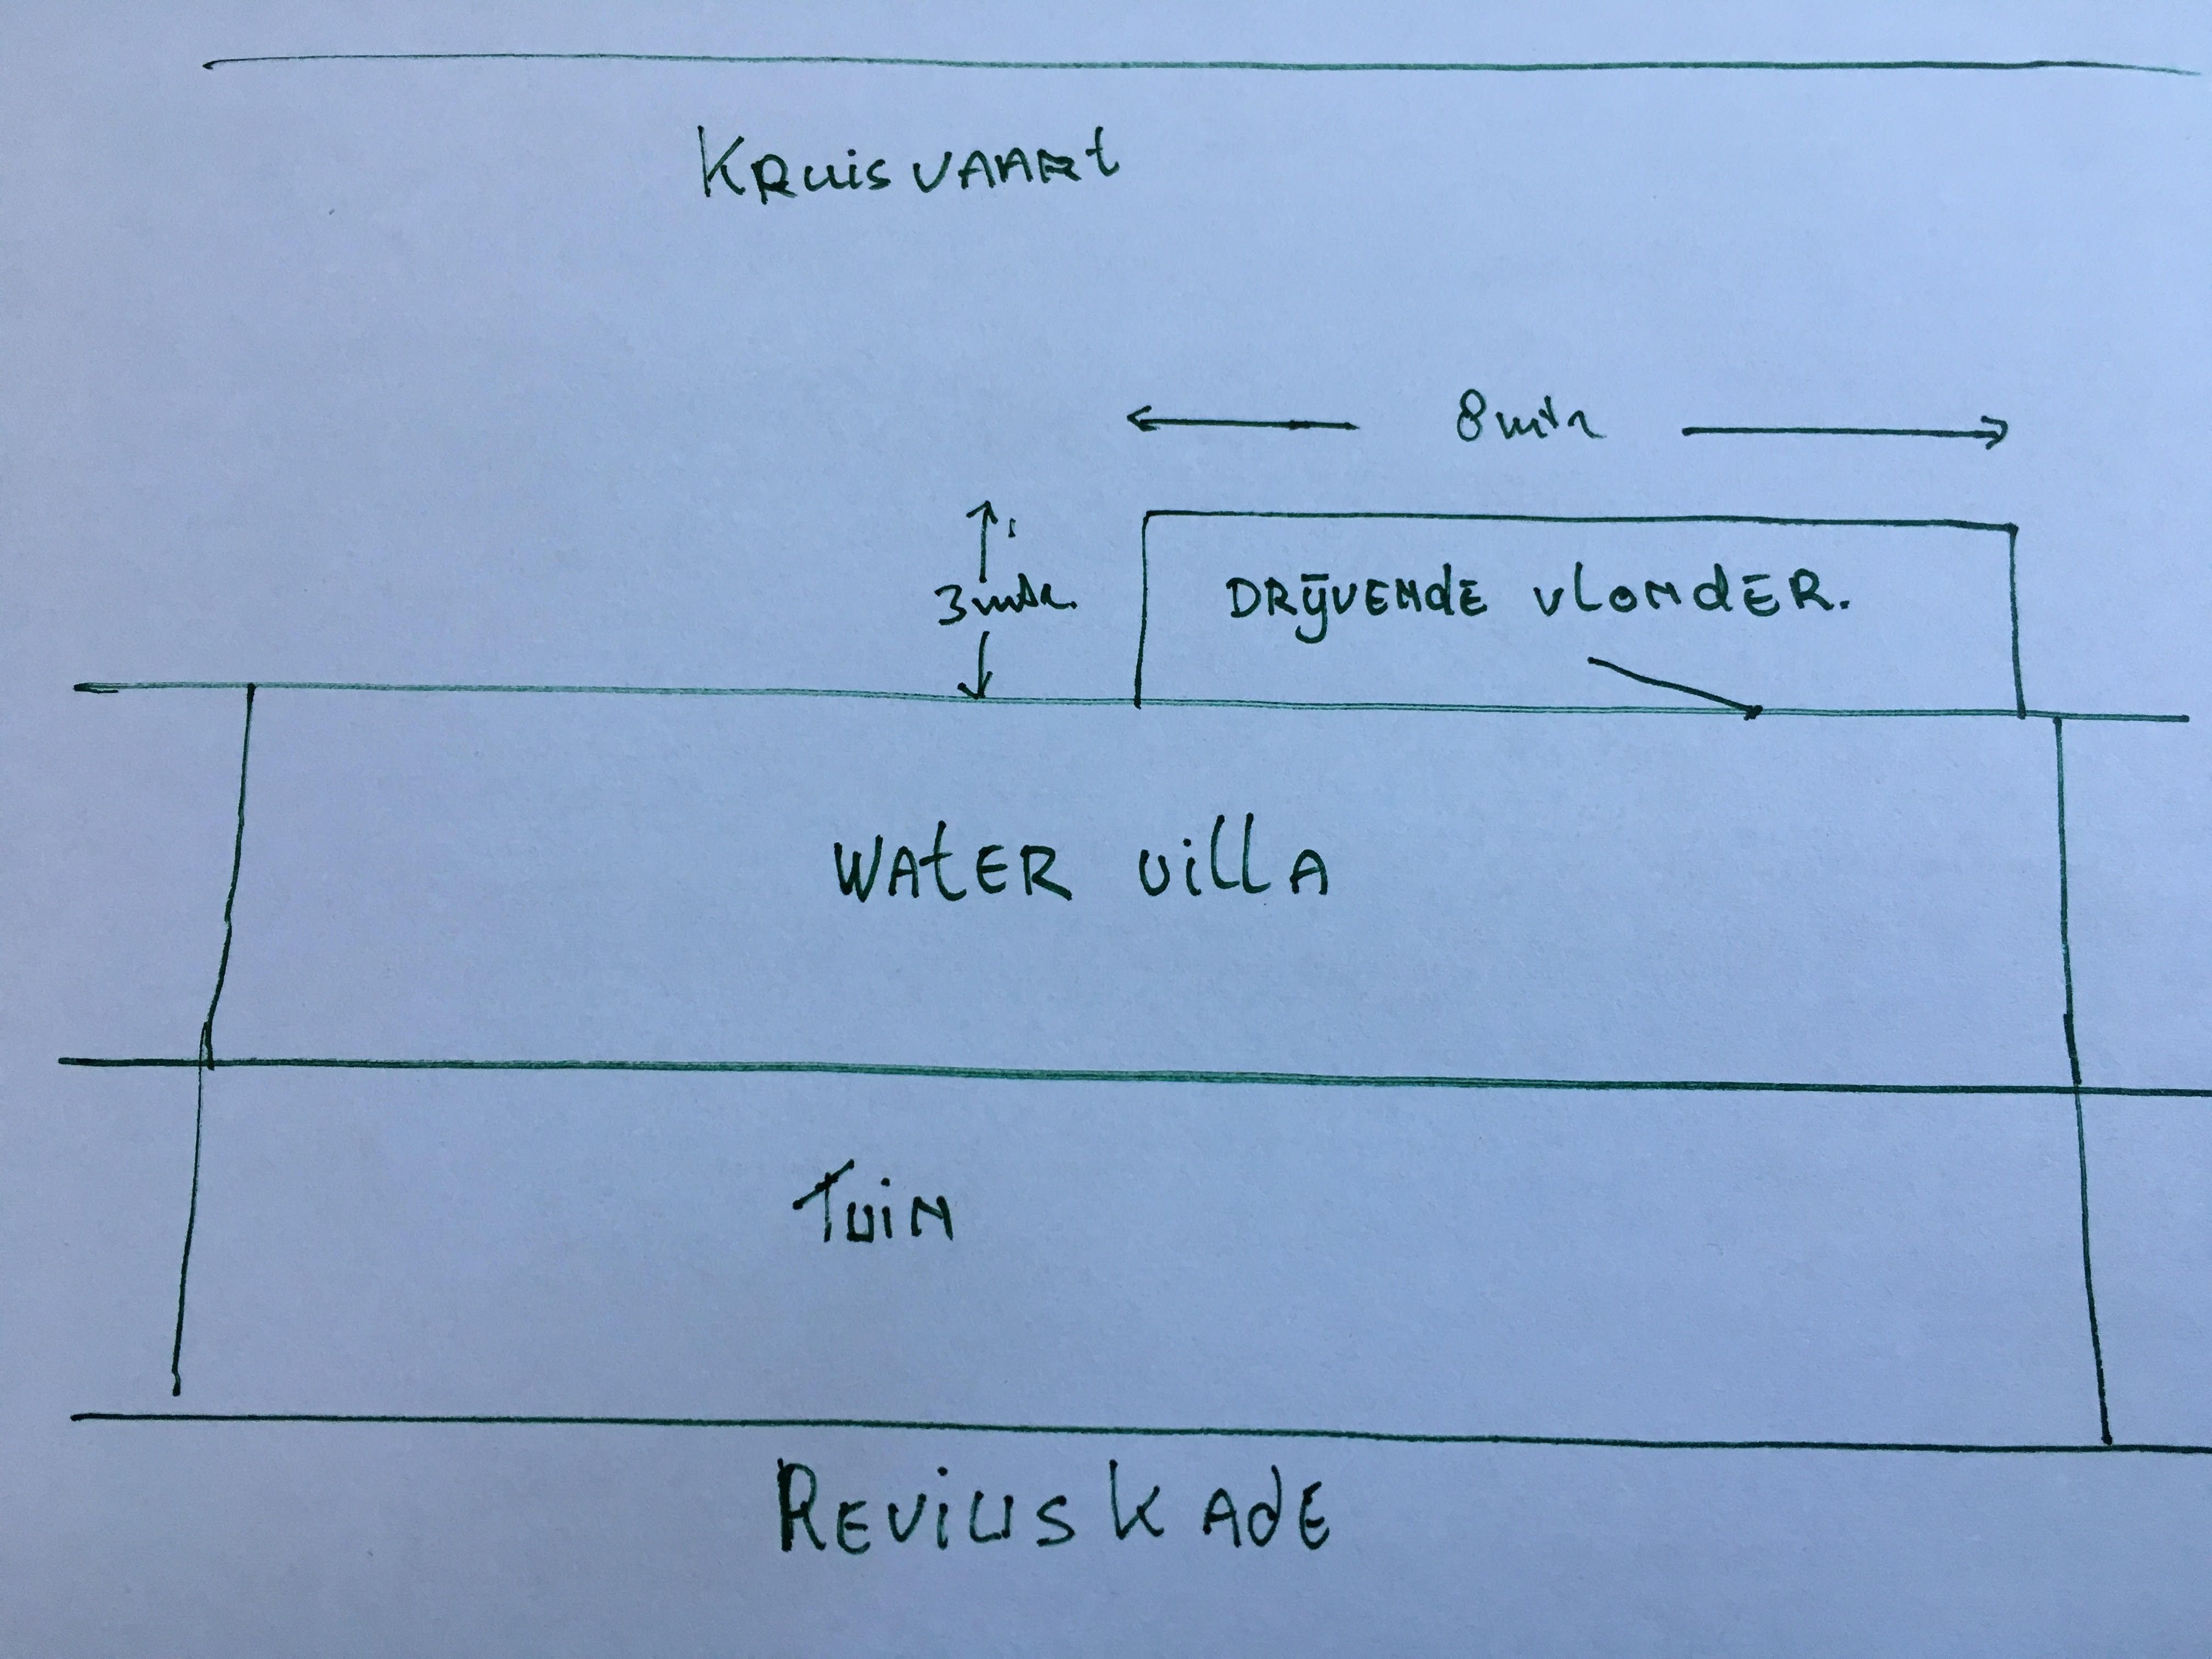 Kruisvaart
8 mtr
3 mtr.
Drijvende vlonder.
Water villa
Tuin
Reviuskade